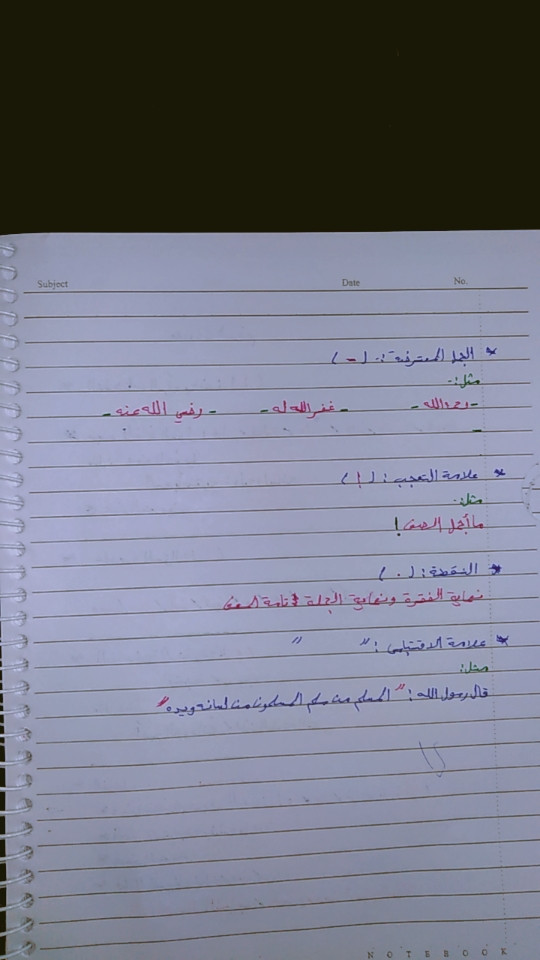 Subject Date No.
* الجمل المعترضة :. ( - )
مثل:.
- رحمه الله - - غفر الله له - - رضي الله عنه -
-
* علامة التعجب : ( ! )
مثل:.
ما أجمل الصف !
* النقطة : ( . )
نهاية الفقرة ونهاية الجملة تامة المعنى
* علامة الاقتباس : " "
مثل:
قال رسول الله : " المسلم من سلم المسلمون من لسانه ويده "
NOTEBOOK